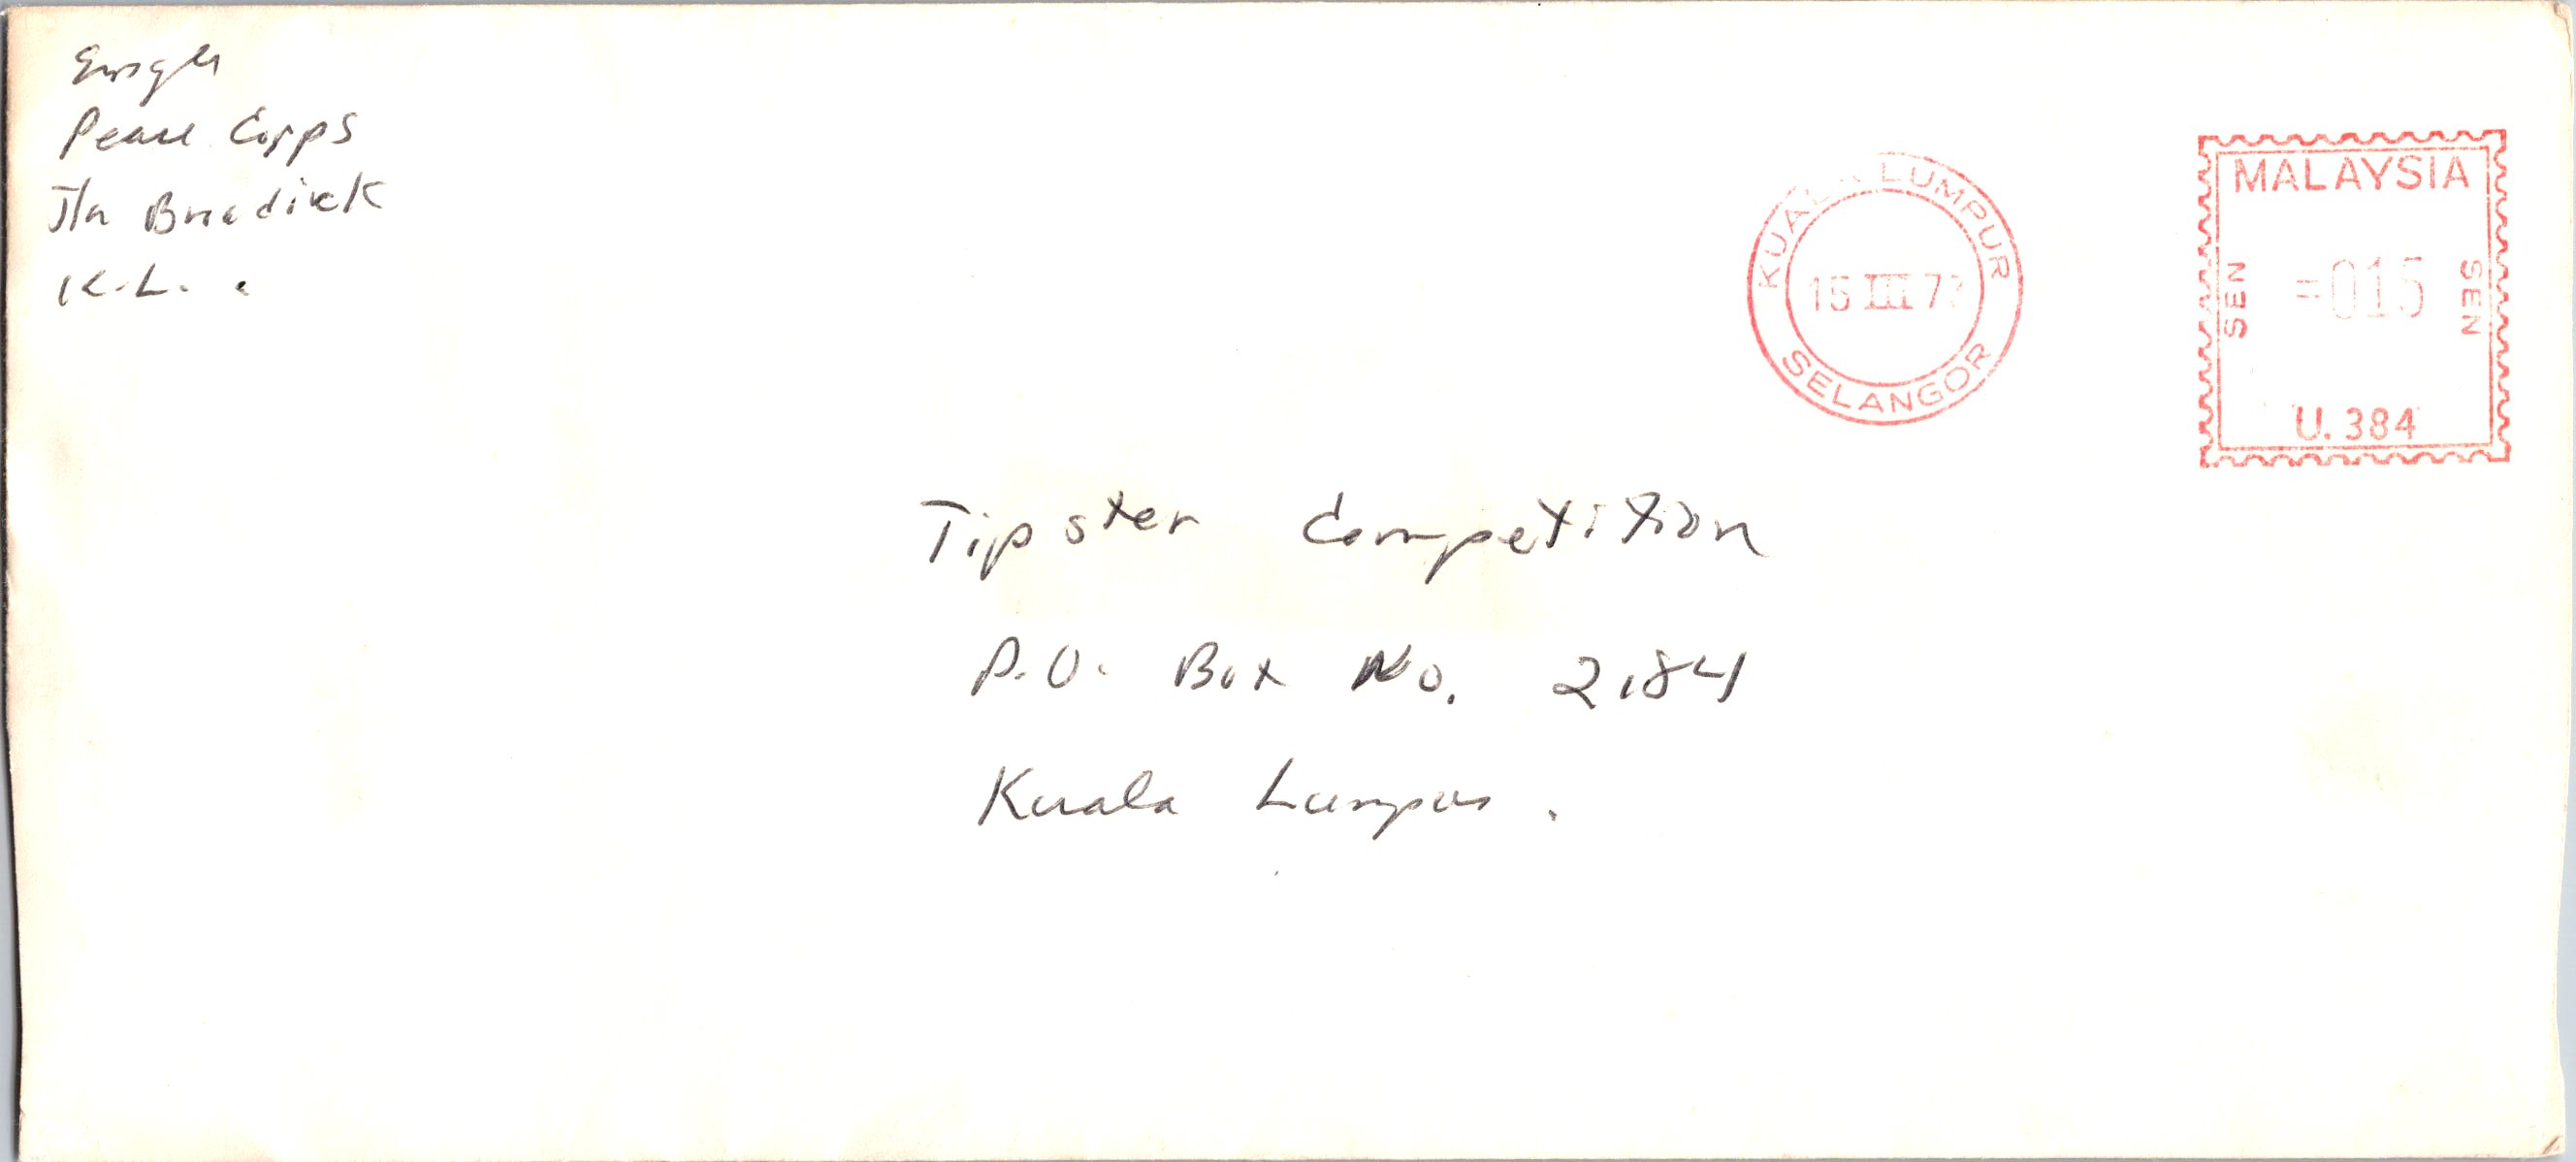 Peace Corps
Jln
K.L.
KUALA LUMPUR
15 III 7
SELANGOR
MALAYSIA
SEN =015 SEN
U. 384
Tipster Competition
P.O. Box No. 2184
Kuala Lumpur.